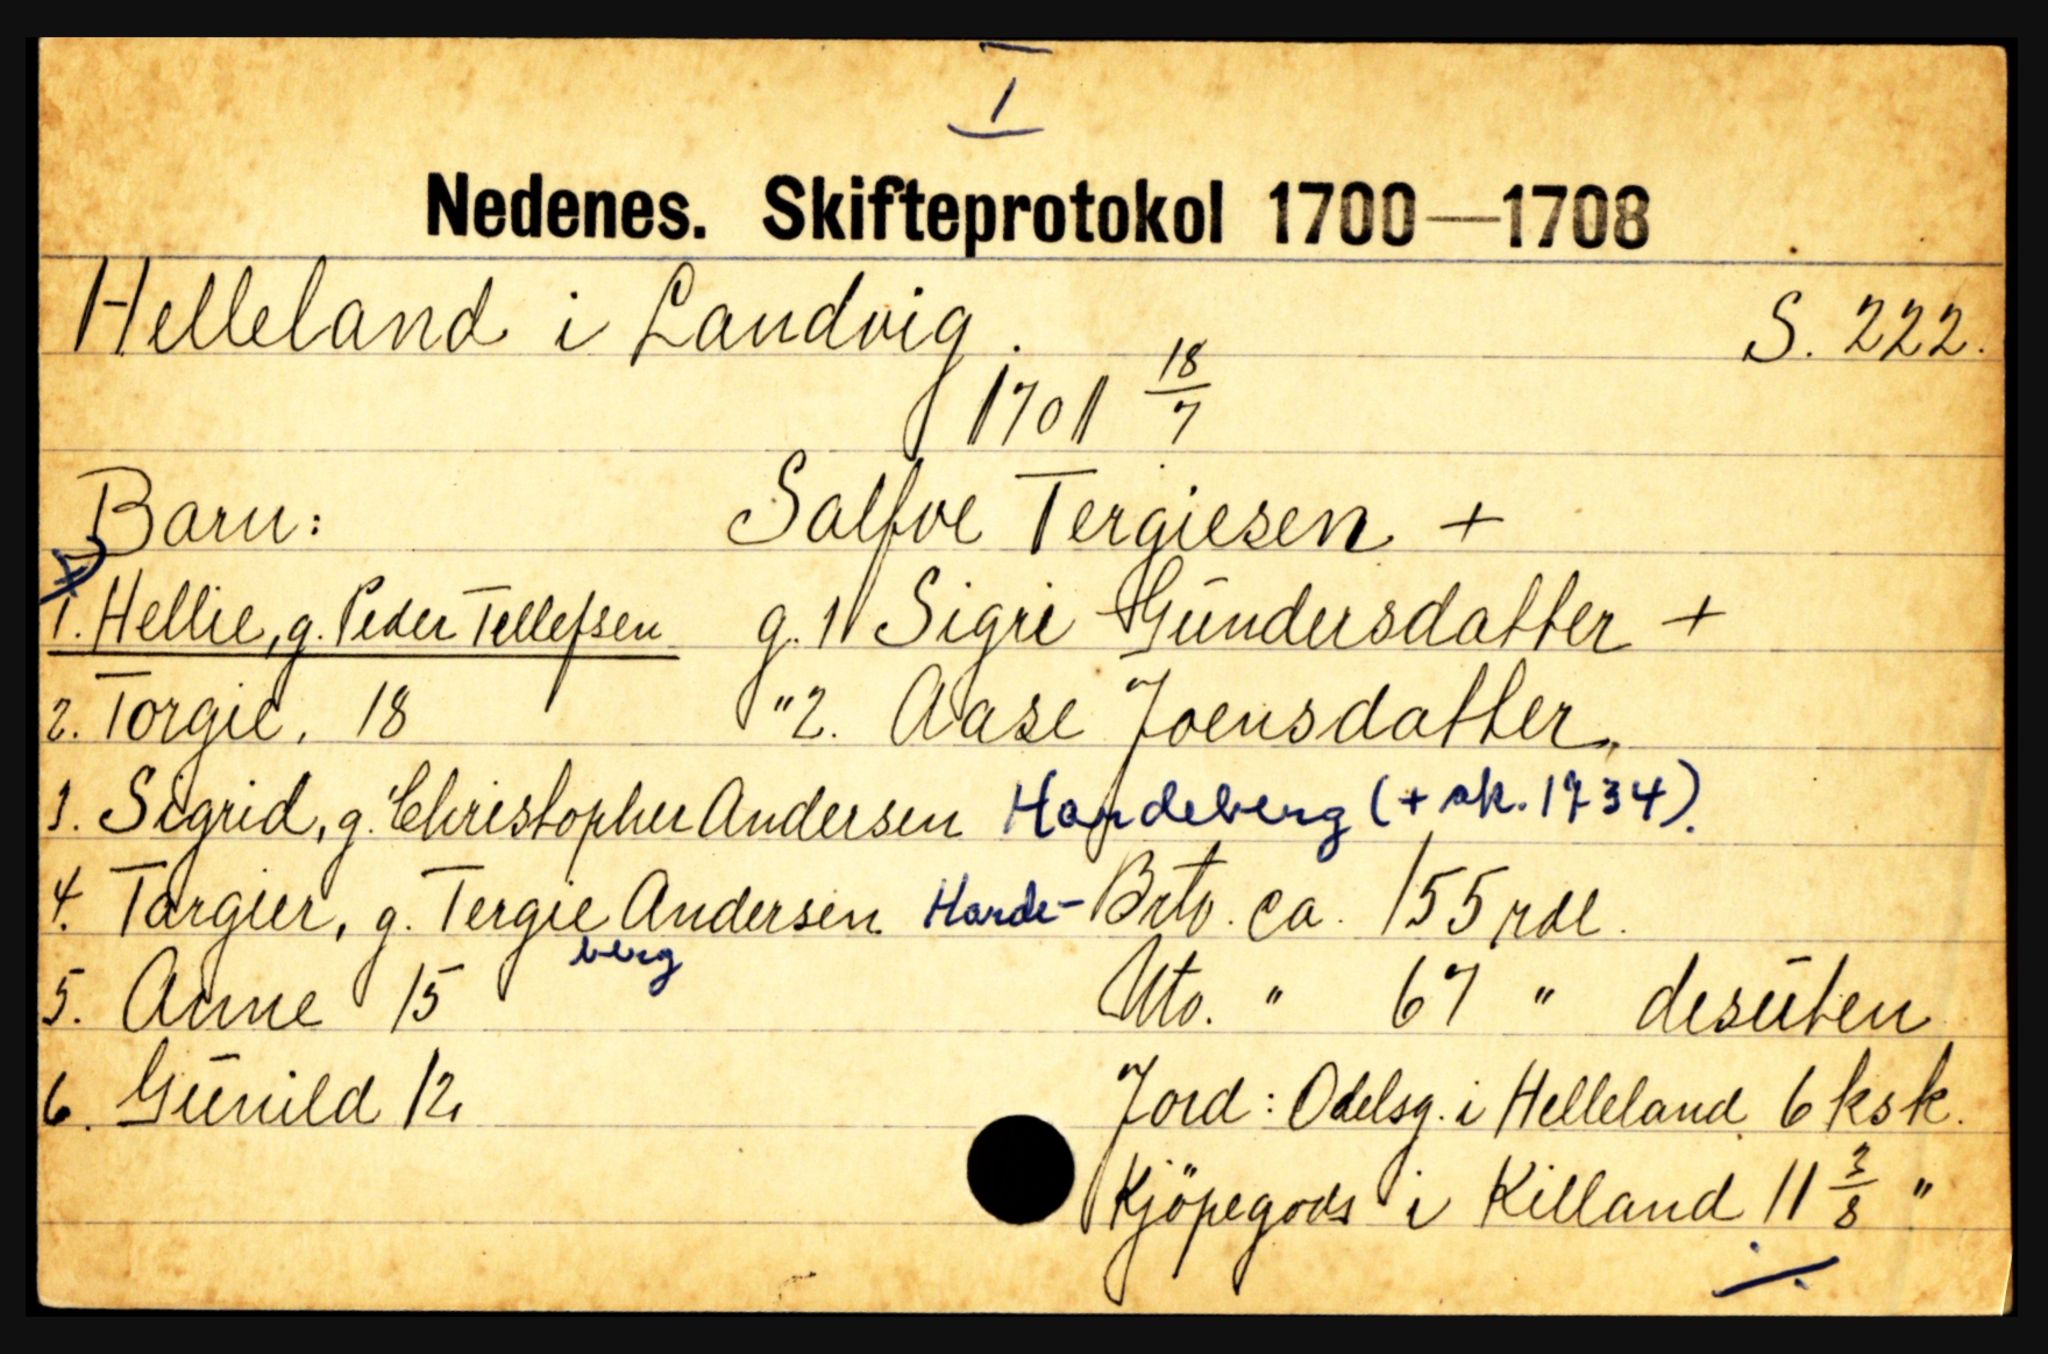 I
Nedenes. Skifteprotokol 1700—1708
Helleland i Landvig. S. 222.
1701 18/7
Barn: Salfve Tergiesen +
1. Hellie, g. Peder Tellefsen g. 1 Sigri Gūndersdatter +
2. Torgie, 18 " 2. Aase Joensdatter.
3. Sigrid, g. Christopher Andersen Hardeberg (+ sk. 1734).
4. Targier, g. Tergie Andersen Harde- Brto. ca. 155 rdl.
berg
5. Anne 15 Nto. " 67 " desūten
6. Gūnild 12 Jord: Odelsg. i Helleland 6 ksk.
Kjöpegods i Killand 11 3/8 "